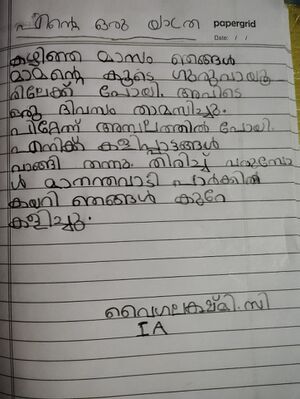 എന്റെ ഒരു യാത്ര
papergrid
Date: / /
കഴിഞ്ഞ മാസം ഞങ്ങൾ
മാമന്റെ കൂടെ ഗുരുവായൂ
രിലേക്ക് പോയി. അവിടെ
ഒരു ദിവസം താമസിച്ചു.
പിറ്റേന്ന് അമ്പലത്തിൽ പോയി.
എനിക്ക് കളിപ്പാട്ടങ്ങൾ
വാങ്ങി തന്നു. തിരിച്ച് വരുമ്പോ
ൾ മാനന്തവാടി പാർക്കിൽ
കയറി ഞങ്ങൾ കുറേ
കളിച്ചു.
സി
I A